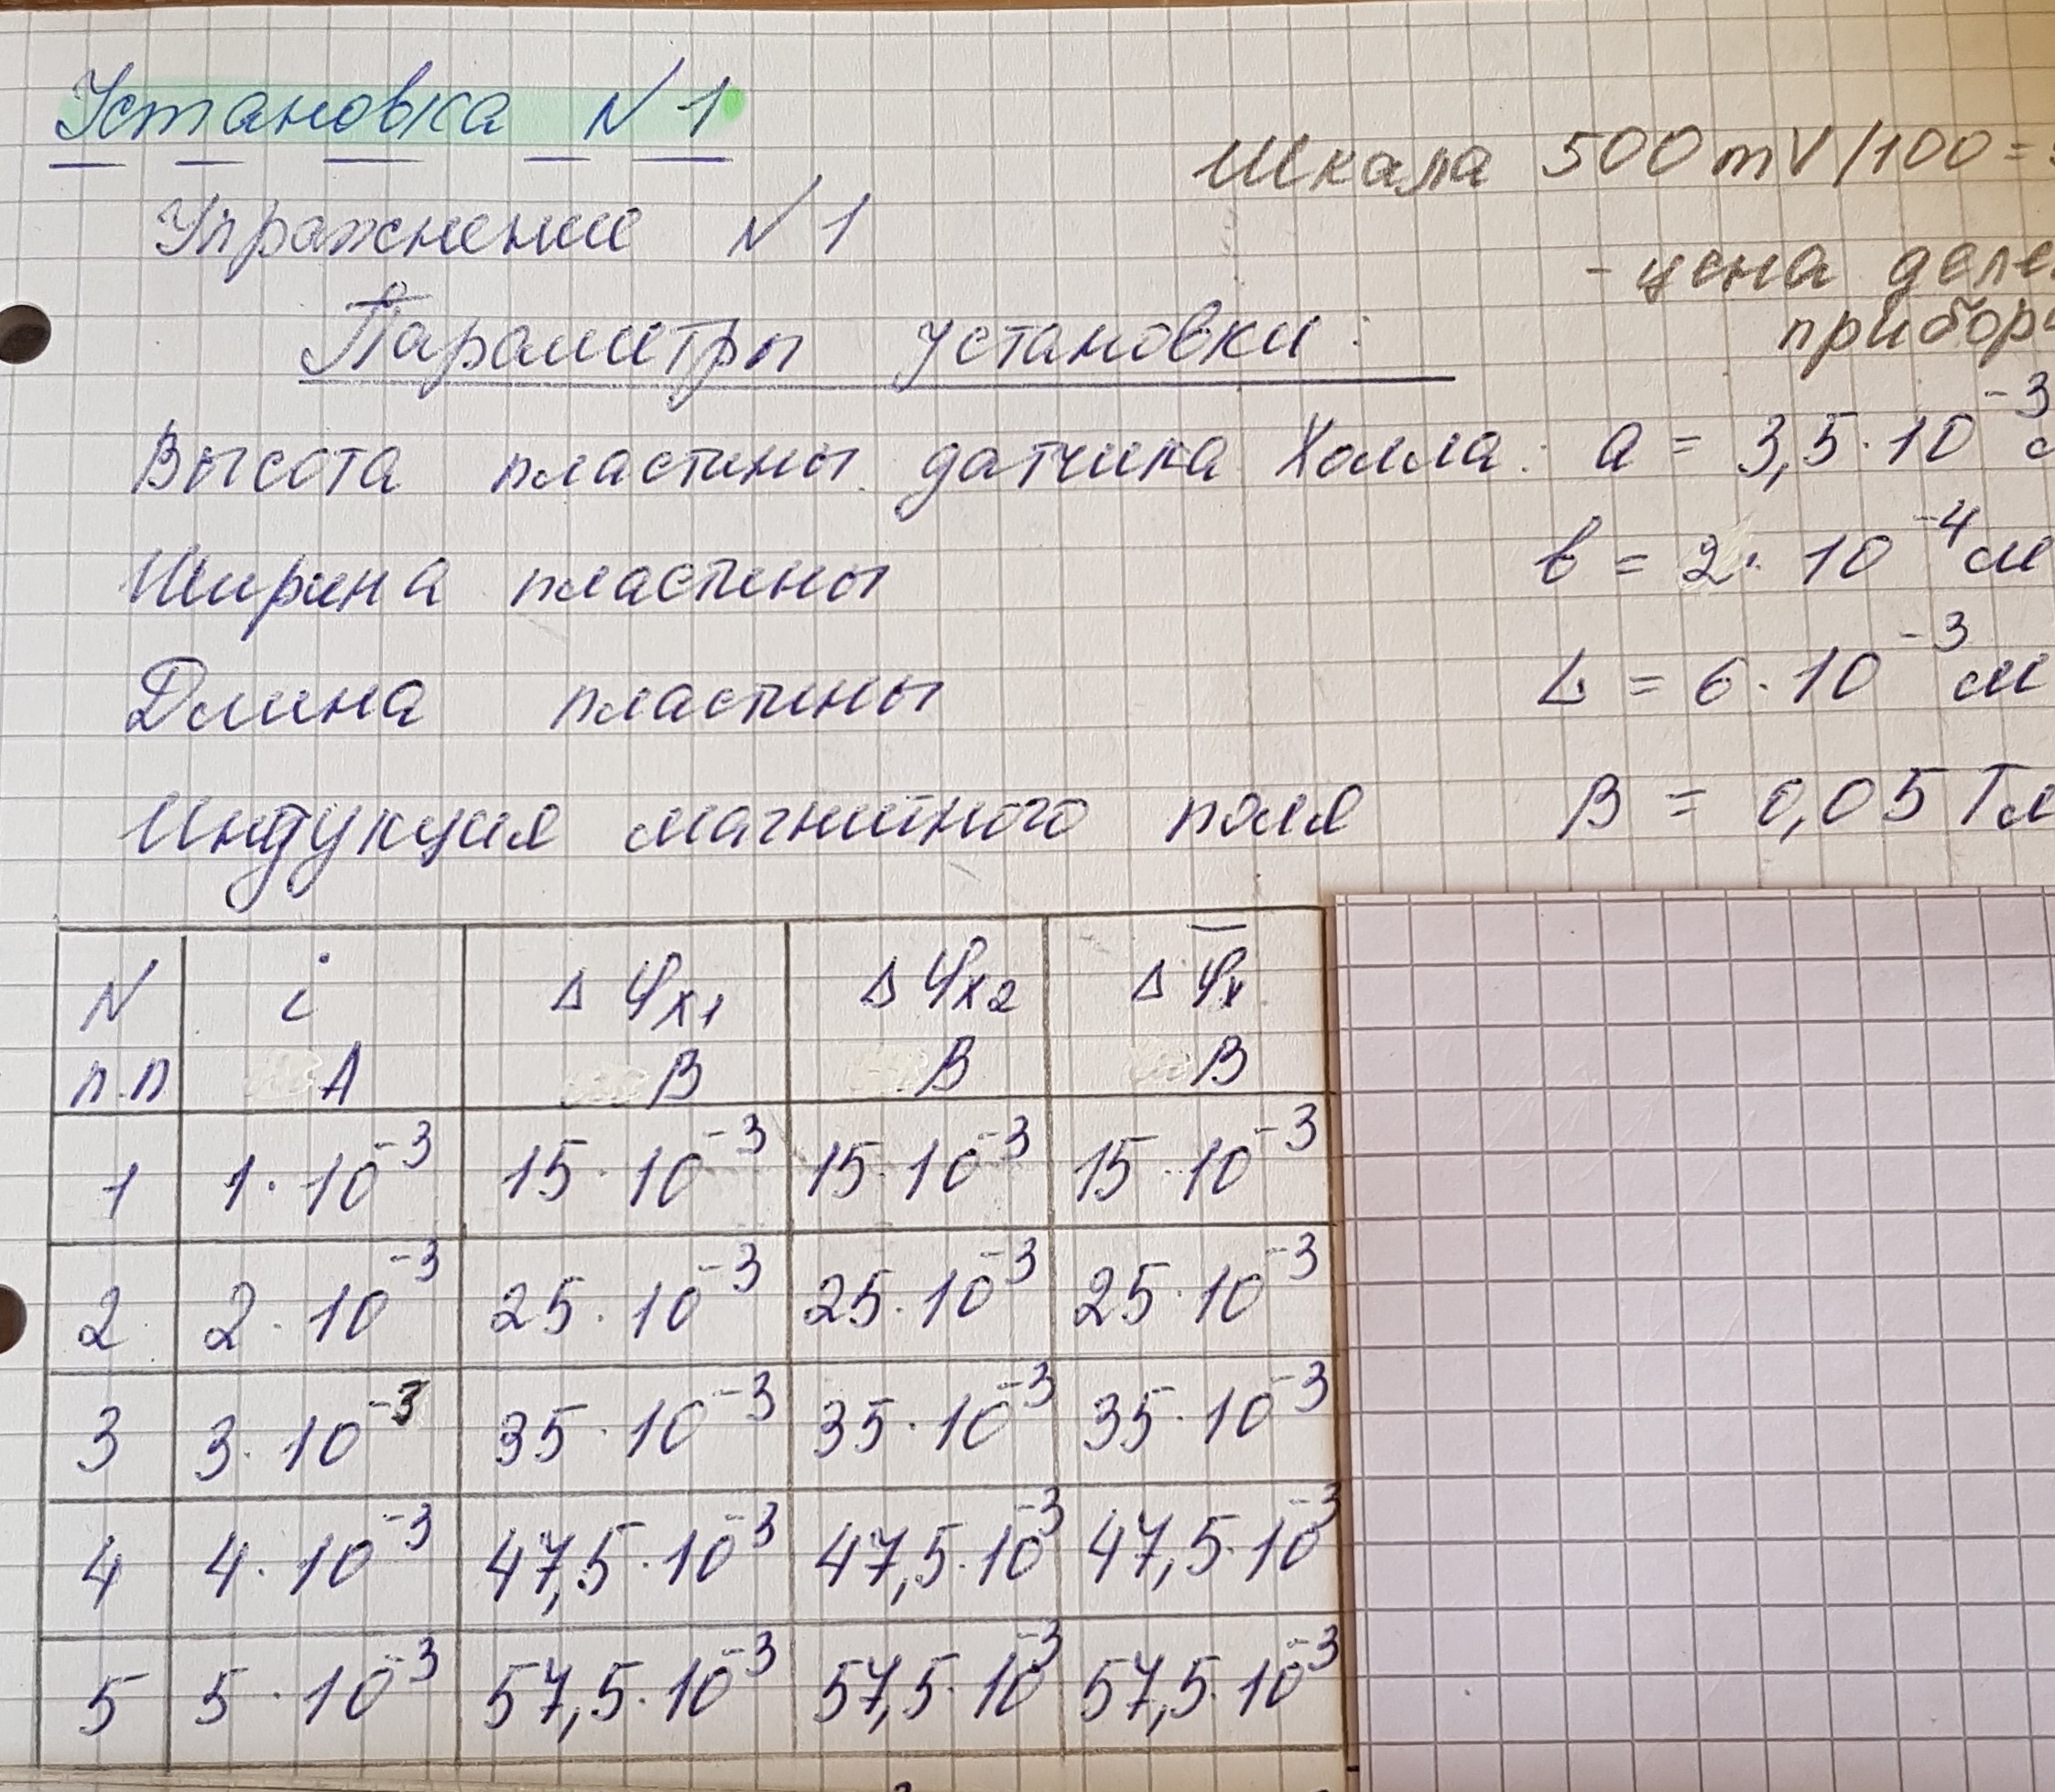 Установка N 1
Шкала 500 mV/100 =
Упражнение N 1
- цена
Параметры установки:
Высота пластины датчика Холла: a = 3,5·10⁻³
Ширина пластины b = 2·10⁻⁴ м
Длина пластины L = 6·10⁻³ м
Индукция магнитного поля B = 0,05 Тл
N п.п i A Δφx1 В Δφx2 В Δφ̅x В
1 1·10⁻³ 15·10⁻³ 15·10⁻³ 15·10⁻³
2 2·10⁻³ 25·10⁻³ 25·10⁻³ 25·10⁻³
3 3·10⁻³ 35·10⁻³ 35·10⁻³ 35·10⁻³
4 4·10⁻³ 47,5·10⁻³ 47,5·10⁻³ 47,5·10⁻³
5 5·10⁻³ 57,5·10⁻³ 57,5·10⁻³ 57,5·10⁻³